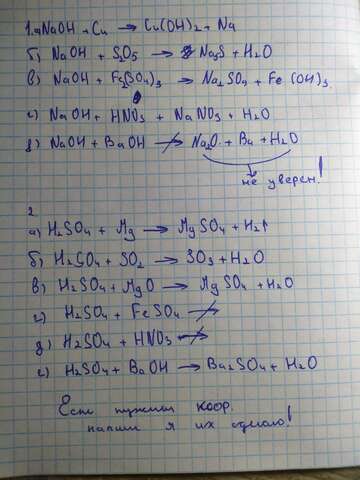 1.а) NaOH + Cu → Cu(OH)₂ + Na
б) NaOH + S₂O₅ → Na₂S + H₂O
в) NaOH + Fe₂(SO₄)₃ → Na₂SO₄ + Fe(OH)₃
г) NaOH + HNO₃ + NaNO₃ + H₂O
д) NaOH + BaOH → Na₂O + Ba + H₂O
не уверен!
2
а) H₂SO₄ + Mg → MgSO₄ + H₂↑
б) H₂SO₄ + SO₂ → SO₃ + H₂O
в) H₂SO₄ + MgO → MgSO₄ + H₂O
г) H₂SO₄ + FeSO₄ →
д) H₂SO₄ + HNO₃ →
е) H₂SO₄ + BaOH → Ba₂SO₄ + H₂O
Если нужны коэф.
напиши я их сделаю!